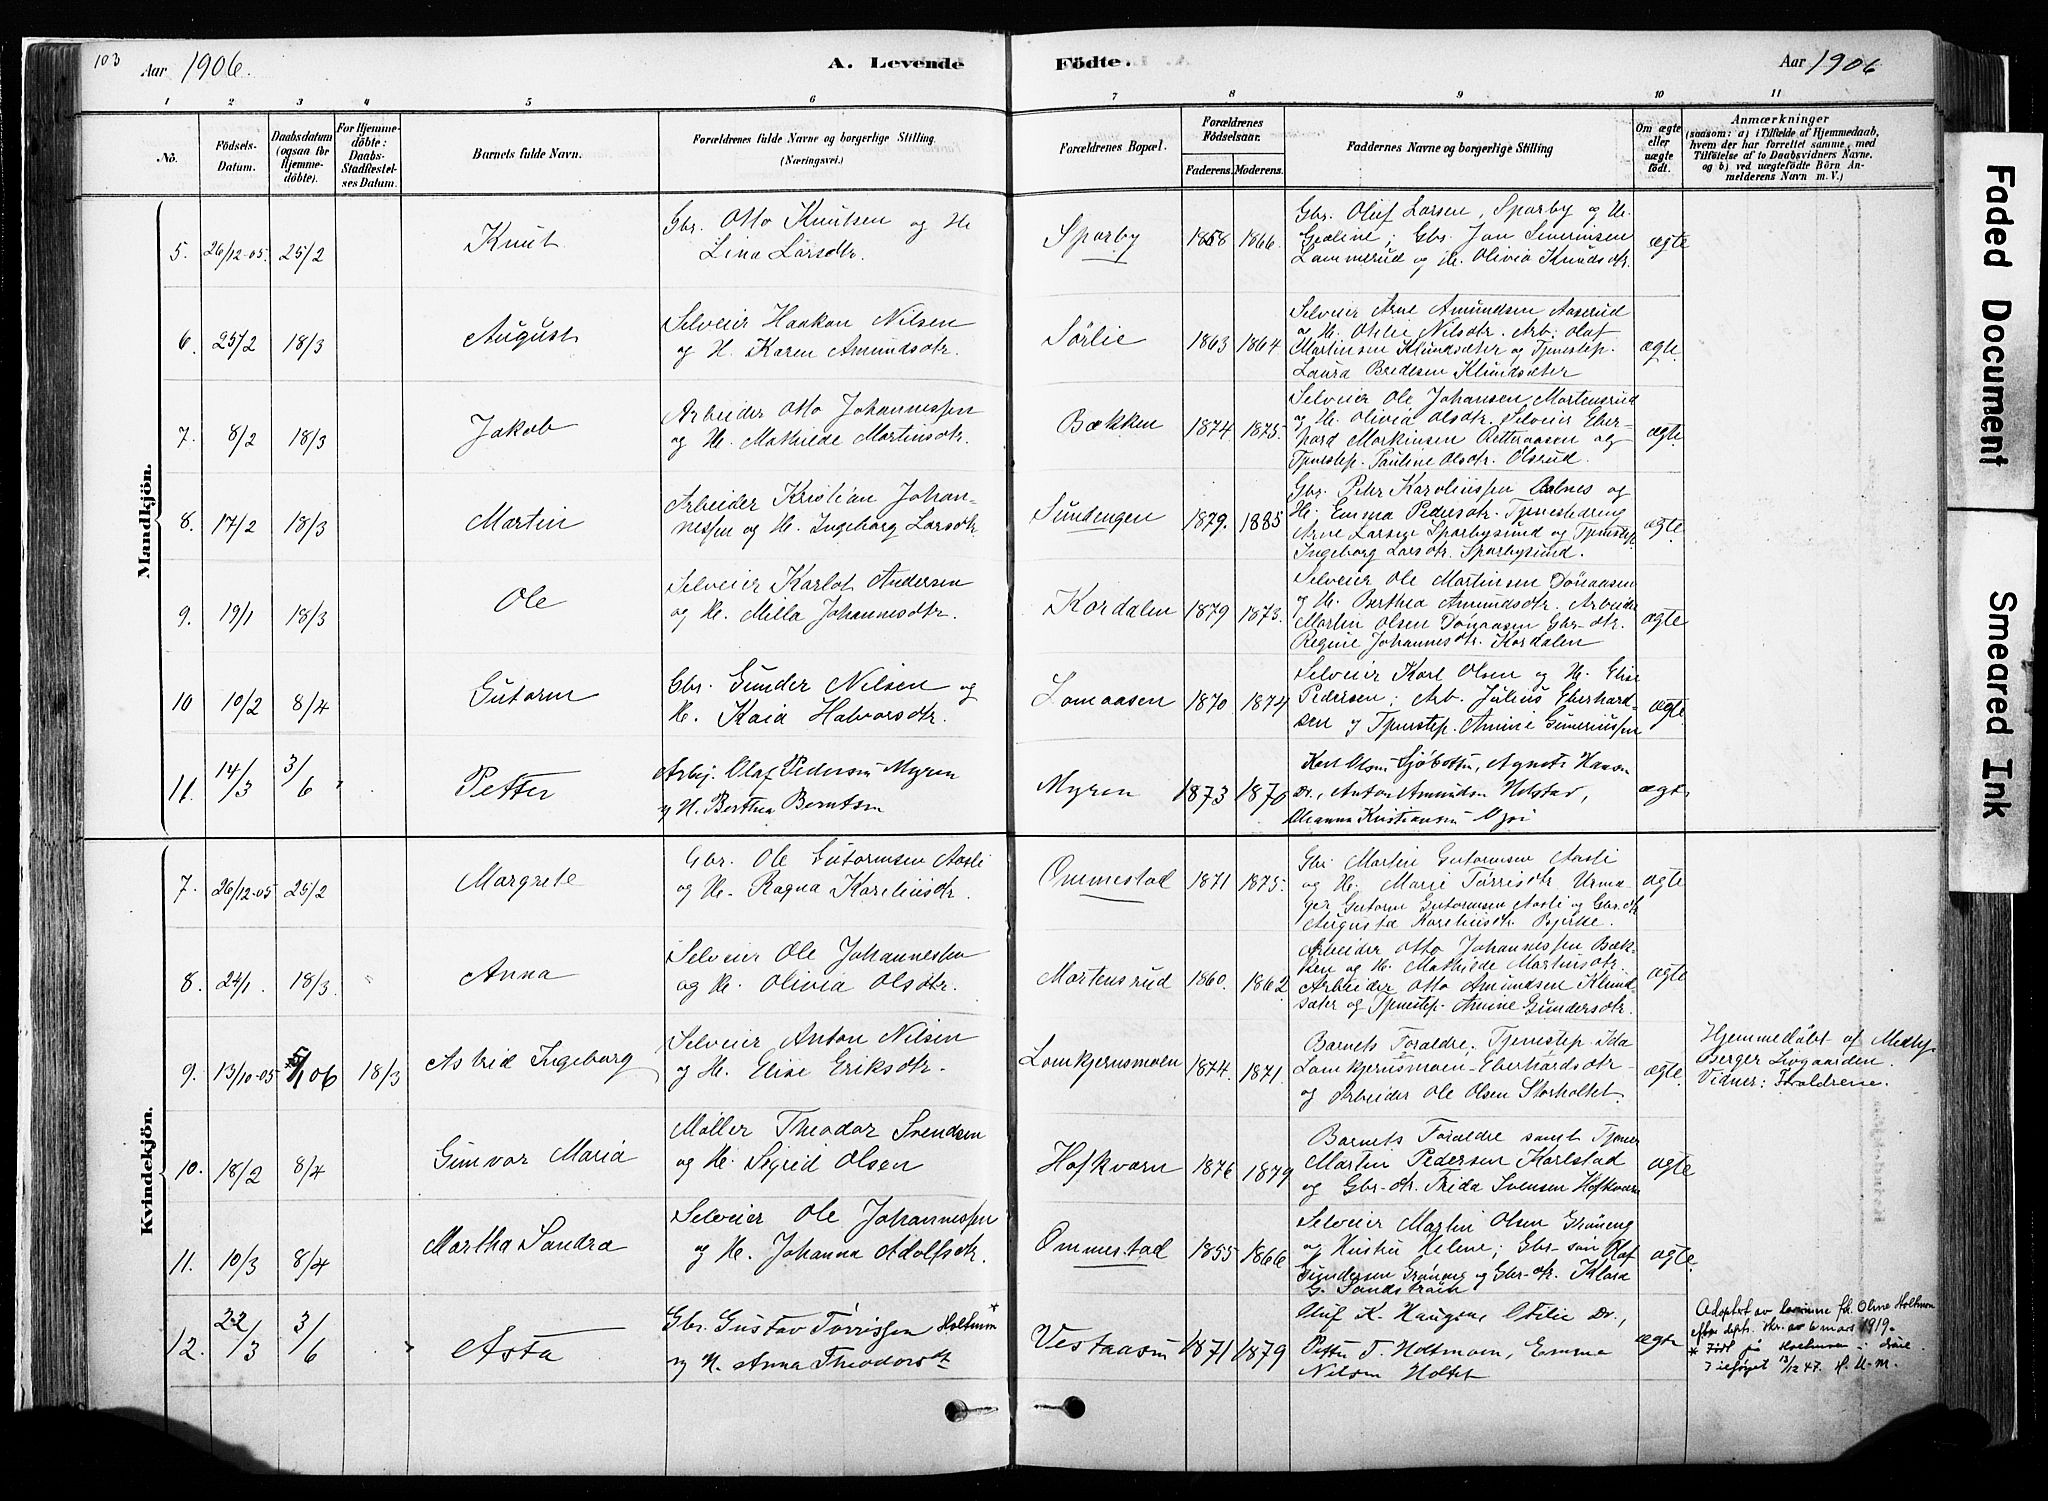 103
Aar 1906.
A. Levende
Födte.
Aar 1906
1 2 3 4 5 6 7 8 9 10 11
Nö.
Födsels-
Datum.
Daabsdatum
(ogsaa for
Hjemme-
döbte).
For Hjemme-
döbte:
Daabs-
Stadfæstel-
ses Datum.
Barnets fulde Navn.
Forældrenes fulde Navne og borgerlige Stilling.
(Næringsvei.)
Forældrenes Bopæl.
Forældrenes
Födselsaar.
Faderens. Moderens.
Faddernes Navne og borgerlige Stilling
Om ægte
eller
uægte
född.
Anmærkninger
(saasom: a) i Tilfælde af Hjemmedaab,
hvem der har forrettet samme, med
Tilföielse af to Daabsvidners Navne.
og b) ved uægtefödte Börn An-
melderens Navn m. V.)
Mandkjön.
5. 26/12-05. 25/2
Knut
Gbr. Otto Knutsen og H.
Lina Larsdtr.
Sparby
1858 1866.
Gbr. Oluf Larsen, Sparby og H.
Geoline; Gbr. Jon Severinsen
Lammerud og H. Olivia Knudsdtr.
ægte
6. 25/2 18/3
August
Selveier Haakon Nilsen
og H. Karen Amundsdtr.
Sørlie
1863 1864
Selveier Arne Amundsen Aaserud
og H. Othe Nilsdtr. Arb. Olaf
Martinsen Klundsæter og Tjenestep.
Laura Bredesen Klundsæter
ægte
7. 8/2 18/3
Jakob
Arbeider Otto Johannessen
og H. Mathilde Martinsdtr.
Bækken
1874 1875.
Selveier Ole Johansen Martensrud
og H. Olivia Olsdtr. Selveier Eber-
hard Martinsen Retteraasen og
Tjenestep. Pauline Olsdtr. Olsrud.
ægte
8. 17/2 18/3
Martin
Arbeider Kristian Johan-
nessen og H. Ingeborg Larsdtr.
Sundengen
1879. 1885
Gbr. Peter Karoliussen Aalnes og
H. Emma Pedersdtr. Tjenestedreng
Arne Larsen Sparbysund og Tjenstep.
Ingeborg Larsdtr. Sparbysund.
ægte
9. 19/1 18/3
Ole
Selveier Karlot Andersen
og H. Milla Johannesdtr.
Kordalen
1879 1873.
Selveier Ole Martinsen Dönaasen
og H. Berthea Amundsdtr. Arbeider
Martin Olsen Dönaasen Gbr-dtr.
Regine Johannesdtr. Kordalen
ægte
10 10/2 8/4
Gutorm
Gbr. Gunder Nilsen og
H. Kaia Halvorsdtr.
Lomaasen
1870 1874
Selveier Karl Olsen og H. Elise
Pedersen; Arb. Julius Eberhard-
sen og Tjenestep. Amine Guneriussen
ægte
11. 14/3 3/6
Petter
Arbej. Olaf Pedersen Myren
og H. Berthea Berntsen
Myren
1873 1870
Karl Olsen, Agnete Hansen
Dr., Anton Amundsen Holstad,
Johanna Kristiansen
ægte
Kvindekjön.
7. 26/12-05 25/2
Margrete
Gbr. Ole Gutormsen Aasli
og H. Ragna Kareliusdtr.
Ommestad
1871 1875.
Gbr. Martin Gutormsen Aasli
og H. Marie Tørrisdtr. Urma-
ger Gutorm Gutormsen Aasli og Gbr.dtr.
Augusta Kareliusdtr. Bjerke.
ægte
8. 24/1. 18/3.
Anna
Selveier Ole Johannessen
og H. Olivia Olsdtr.
Martensrud
1860. 1862
Arbeider Otto Johannessen Bæk-
ken og H. Mathilde Martinsdtr.
Arbeider Otto Amundsen Klund-
sæter og Tjenestep. Amine Gundersdtr.
ægte
9. 13/10-05 5/1 06 18/3
Astrid Ingeborg
Selveier Anton Nilsen
og H. Elise Eriksdtr.
Lomkjernsmoen
1874. 1871.
Barnets Forældre, Tjenestep. Ida
Lomkjernsmoen Eberhardsdtr.
og Arbeider Ole Olsen Storholtet.
ægte
Hjemmedøbt af Methj.
Berger Livgaarden.
Vidner: Forældrene.
10. 18/2 8/4
Gunvor Maria
Møller Theodor Svendsen
og H. Sigrid Olsen
Hofkværn
1876 1879
Barnets Forældre samt Tjener
Martin Pedersen Karlstad
og Gbr-dtr. Frida Svensen Hofkværn
ægte
11. 10/3 8/4
Martha Sandra
Selveier Ole Johannessen
og H. Johanna Adolfsdtr.
Ommestad
1855 1866
Selveier Martin Olsen Grøneng
og Hustru Helene; Gbr-søn Olaf
Gundersen Grøneng og Gbr-dtr. Klara
G. Sandstrøm
ægte.
12. 22/3 3/6
Asta
Gbr. Gustav Tørrissen Holtmoen*
og H. Anna Theodorsdtr
Vestaasen
1871 1879
Oluf K. Haugen, Otilie Dr.,
Petter T. Holtmoen, Emma
Nilsen Holtet
ægte
Adoptert av frk. Oline Holtmoen
efter dept. skr. av 6 mars 1919.
* Født på Holtmoen
Tilføiet 13/12 47. H. U-m.
Faded Document
Smeared Ink